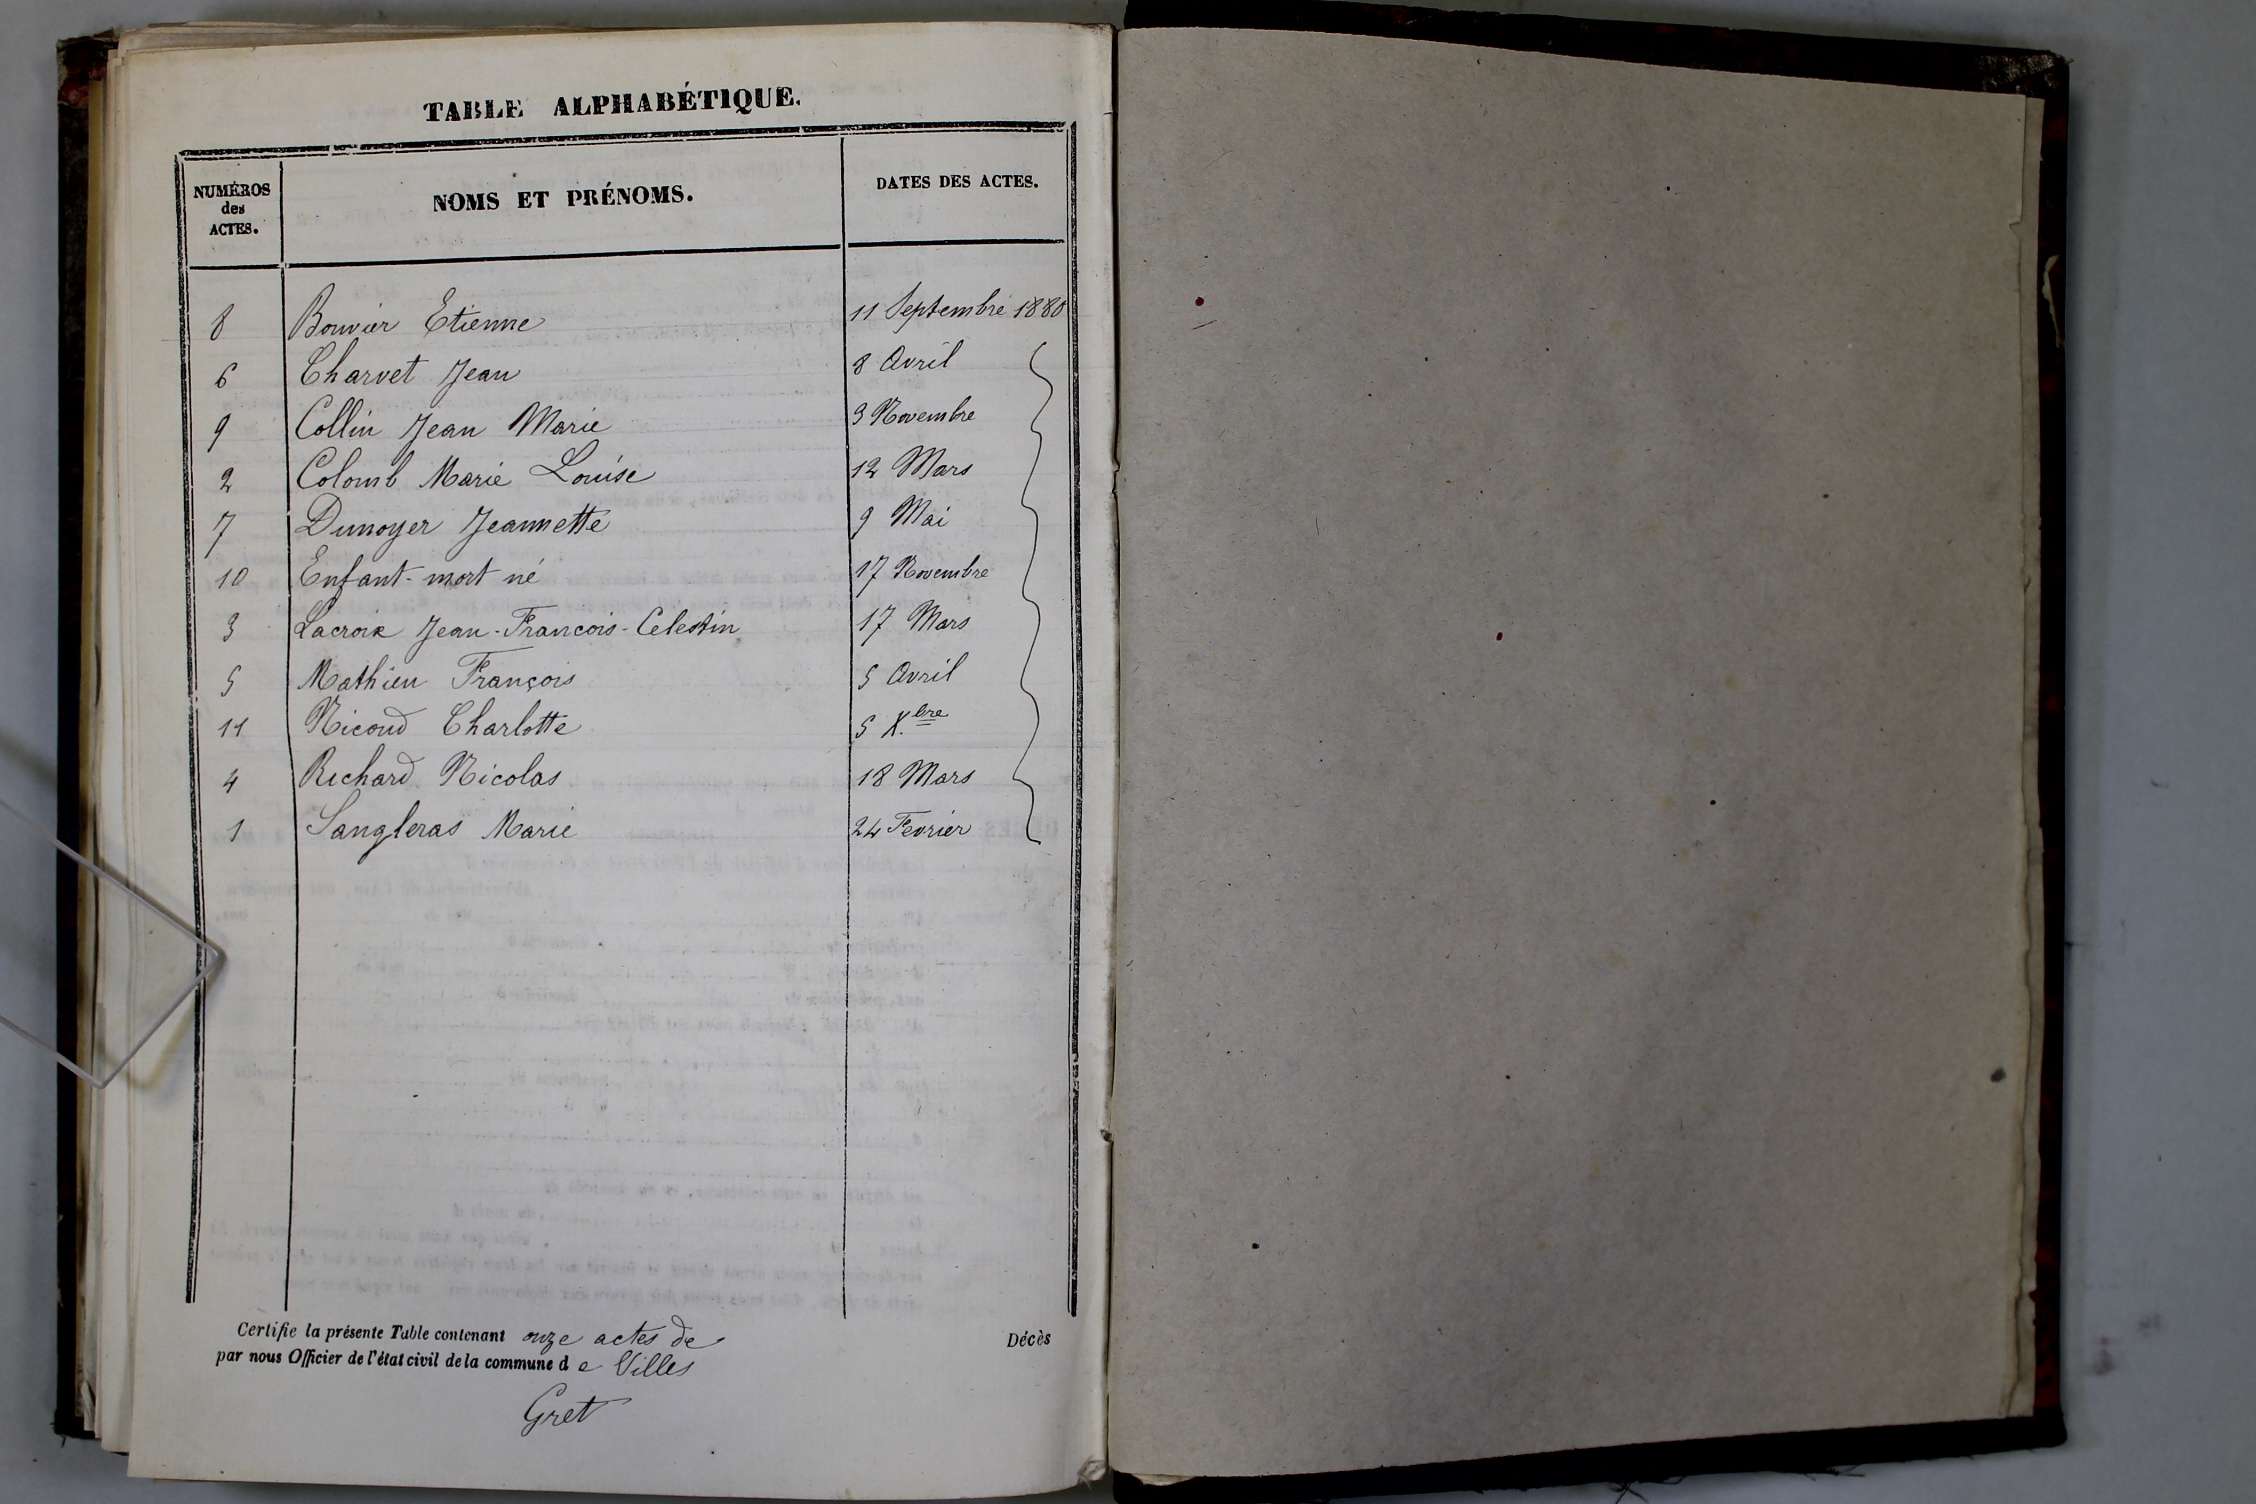 TABLE ALPHABÉTIQUE.
NUMÉROS des ACTES. NOMS ET PRÉNOMS. DATES DES ACTES.
8 Bouvier Etienne 11 Septembre 1880
6 Charvet Jean 8 Avril
9 Collin Jean Marie 3 Novembre
2 Colomb Marie Louise 12 Mars
7 Dunoyer Jeannette 9 Mai
10 Enfant-mort né 17 Novembre
3 Lacroix Jean-Francois-Celestin 17 Mars
5 Mathieu François 5 Avril
11 Nicoud Charlotte 5 X.bre
4 Richard Nicolas 18 Mars
1 Sangleras Marie 24 Fevrier
Certifie la présente Table contenant onze actes de Décès
par nous Officier de l'état civil de la commune d e Villes
Gret